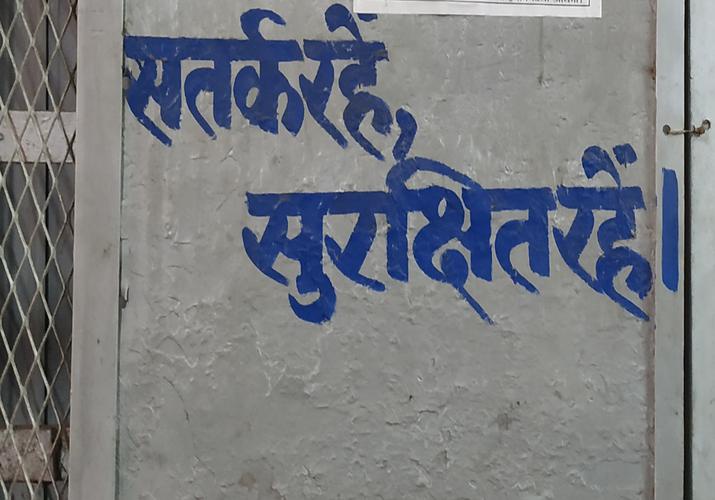 सतर्क रहें,
सुरक्षित रहें।